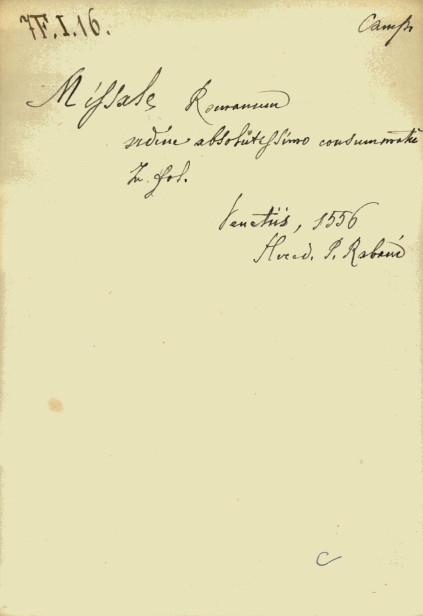 7F.I.16.
Camp.
Missale Romanum
ordine absolutissimo consummatū
In fol.
Venetiis, 1556
Hered. P. Rabani
C